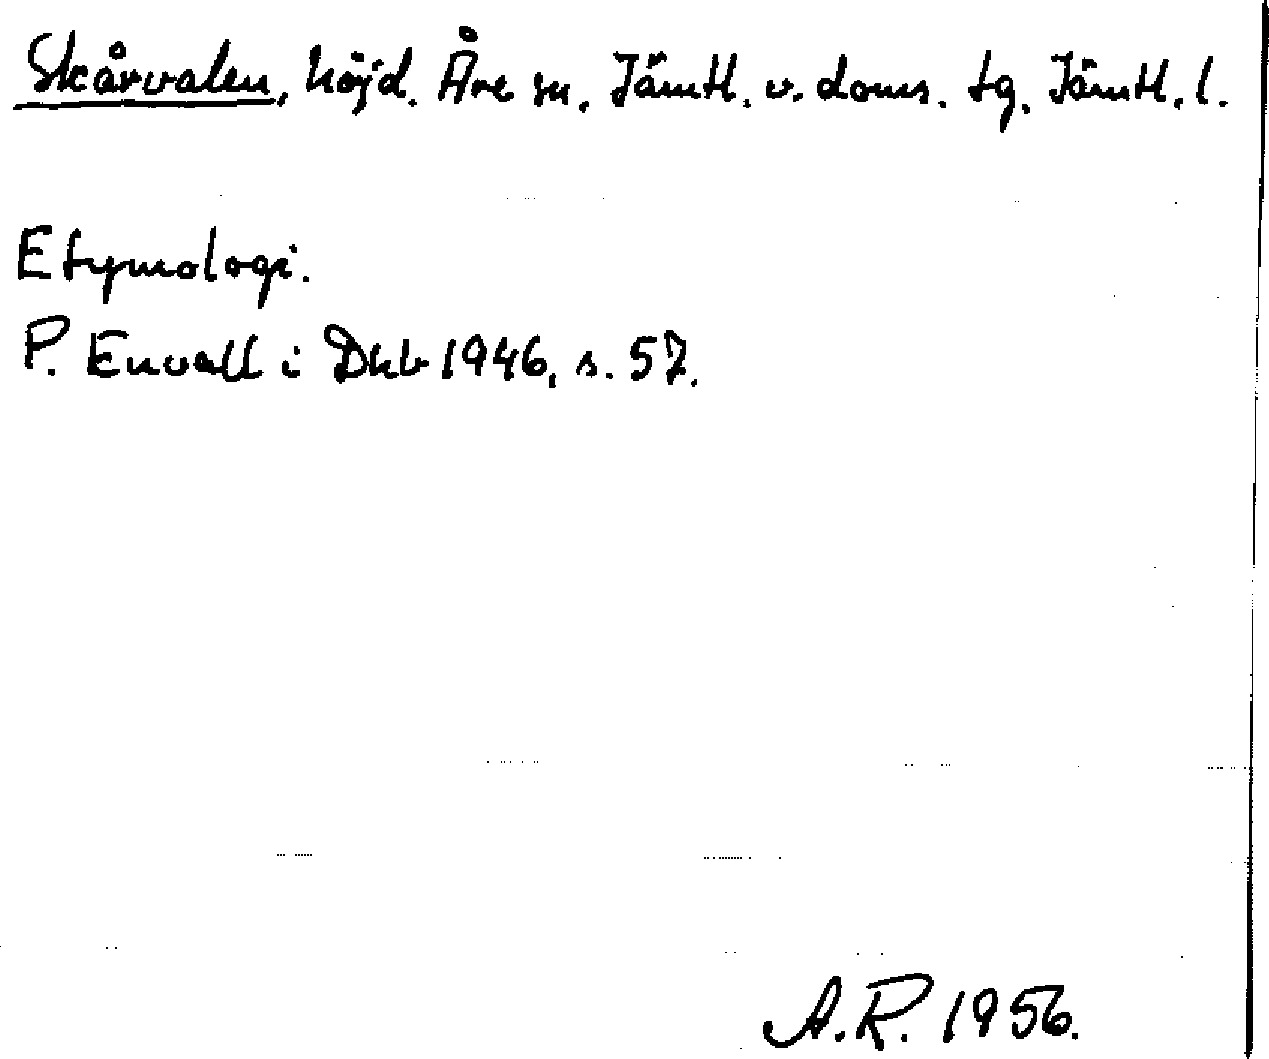 Skårvalen, höjd. Åre sn. Jämtl. v. doms. tg. Jämtl. l.
Etymologi.
P. Envall i Dhb 1946, s. 57.
A.R. 1956.